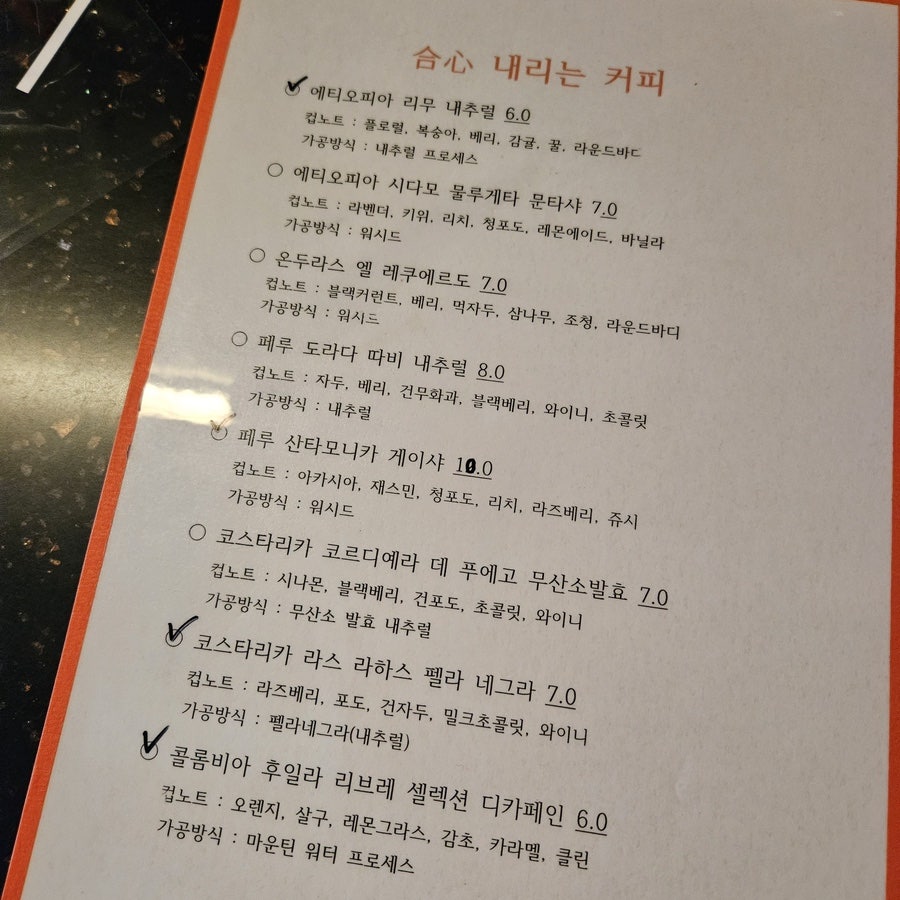 合心 내리는 커피
에티오피아 리무 내추럴 6.0
컵노트 : 플로럴, 복숭아, 베리, 감귤, 꿀, 라운드바디
가공방식 : 내추럴 프로세스
에티오피아 시다모 물루게타 문타샤 7.0
컵노트 : 라벤더, 키위, 리치, 청포도, 레몬에이드, 바닐라
가공방식 : 워시드
온두라스 엘 레쿠에르도 7.0
컵노트 : 블랙커런트, 베리, 먹자두, 삼나무, 조청, 라운드바디
가공방식 : 워시드
페루 도라다 따비 내추럴 8.0
컵노트 : 자두, 베리, 건무화과, 블랙베리, 와이니, 초콜릿
가공방식 : 내추럴
페루 산타모니카 게이샤 10.0
컵노트 : 아카시아, 재스민, 청포도, 리치, 라즈베리, 쥬시
가공방식 : 워시드
코스타리카 코르디예라 데 푸에고 무산소발효 7.0
컵노트 : 시나몬, 블랙베리, 건포도, 초콜릿, 와이니
가공방식 : 무산소 발효 내추럴
코스타리카 라스 라하스 펠라 네그라 7.0
컵노트 : 라즈베리, 포도, 건자두, 밀크초콜릿, 와이니
가공방식 : 펠라네그라(내추럴)
콜롬비아 후일라 리브레 셀렉션 디카페인 6.0
컵노트 : 오렌지, 살구, 레몬그라스, 감초, 카라멜, 클린
가공방식 : 마운틴 워터 프로세스